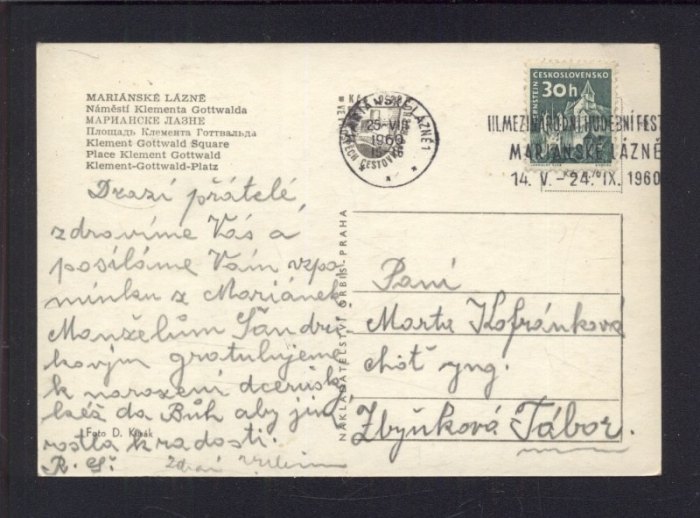 MARIÁNSKÉ LÁZNĚ
Náměstí Klementa Gottwalda
МАРИАНСКЕ ЛАЗНЕ
Площадь Клемента Готтвальда
Klement Gottwald Square
Place Klement Gottwald
Klement-Gottwald-Platz
Drazí přátelé,
zdravíme Vás a
posíláme Vám vzpo
mínku z Mariánek
Manželům Šandri
kovým gratulujeme
k narození dcerušky
kéž dá Bůh aby jim
rostla k radosti.
R. Š.
Zdraví
Foto D. Krpák
NAKLADATELSTVÍ ORBIS-PRAHA
MARIÁNSKÉ LÁZNĚ 1
25.VIII
1960
ČESKOSLOVENSKO
30h
III. MEZINÁRODNÍ HUDEBNÍ FEST
MARIÁNSKÉ LÁZNĚ
14. V. - 24. IX. 1960
Paní
Marta Kofránková
choť yng.
Zbyňková Tábor.